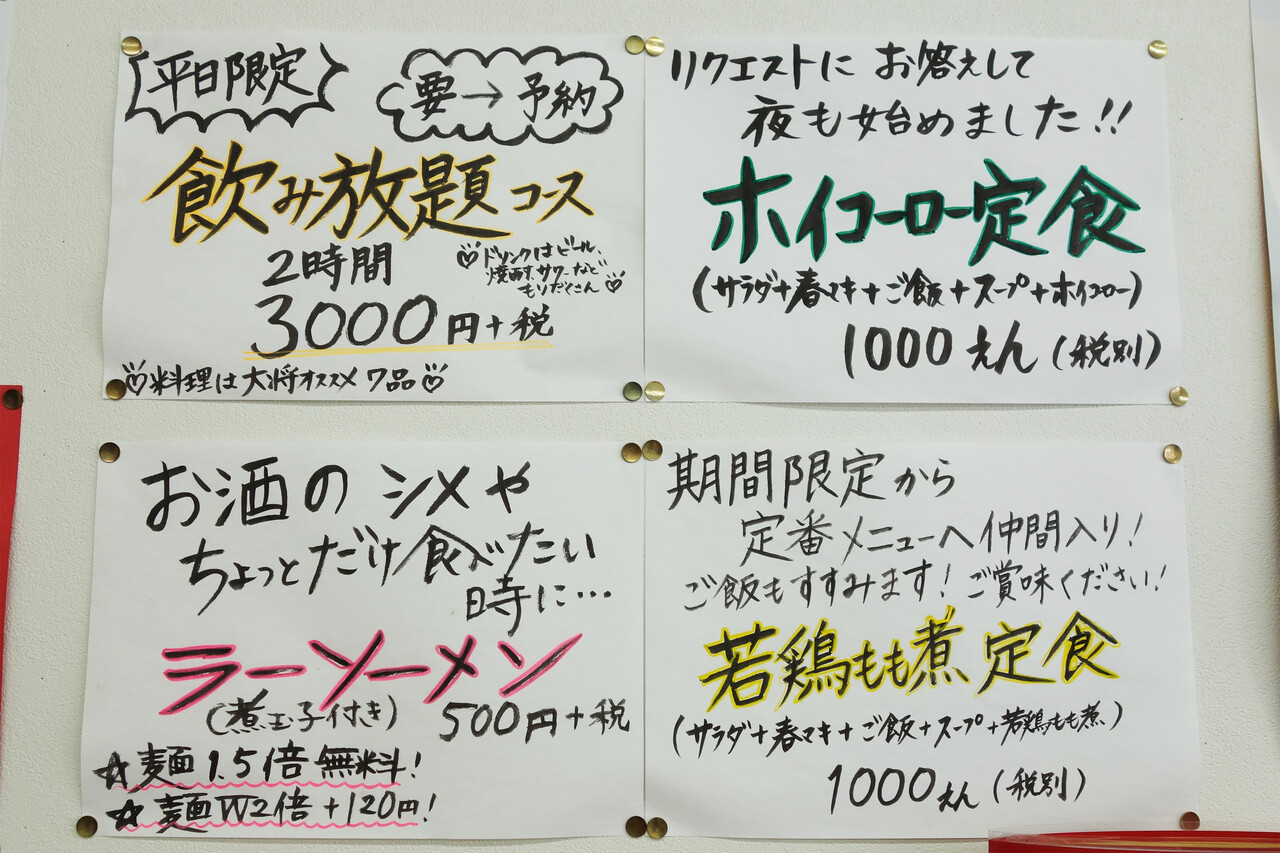 平日限定
要→予約
飲み放題コース
2時間
♡ドリンクはビール、
焼酎、サワーなど
もりだくさん♡
3000円+税
♡料理は大将オススメ7品♡
リクエストにお答えして
夜も始めました!!
ホイコーロー定食
(サラダ+春マキ+ご飯+スープ+ホイコーロー)
1000えん(税別)
お酒のシメや
ちょっとだけ食べたい
時に…
ラーソーメン
(煮玉子付き) 500円+税
☆麺1.5倍無料!
☆麺W2倍+120円!
期間限定から
定番メニューへ仲間入り!
ご飯もすすみます!ご賞味ください!
若鶏もも煮定食
(サラダ+春マキ+ご飯+スープ+若鶏もも煮)
1000えん(税別)